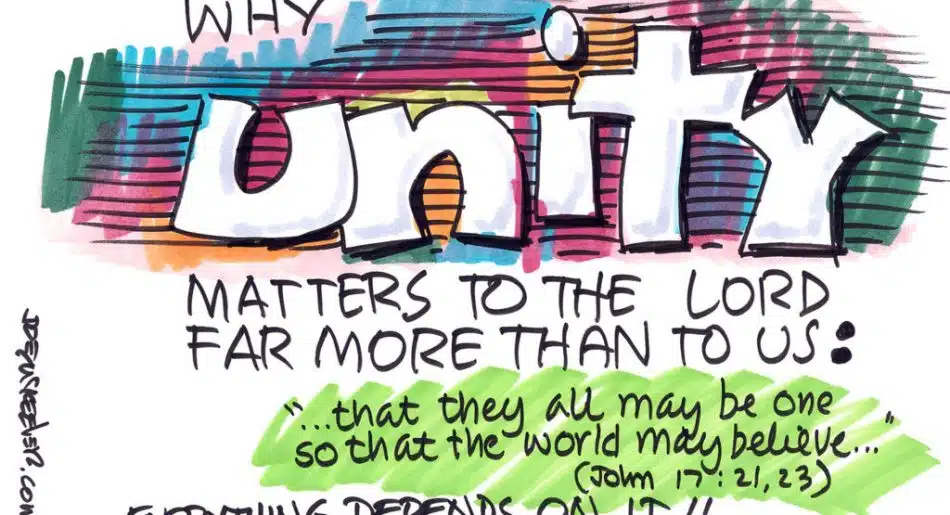 WHY
UNiTY
MATTERS TO THE LORD
FAR MORE THAN TO US:
"...that they all may be one
so that the world may believe..."
(John 17:21,23)
EVERYTHING DEPENDS ON IT!!